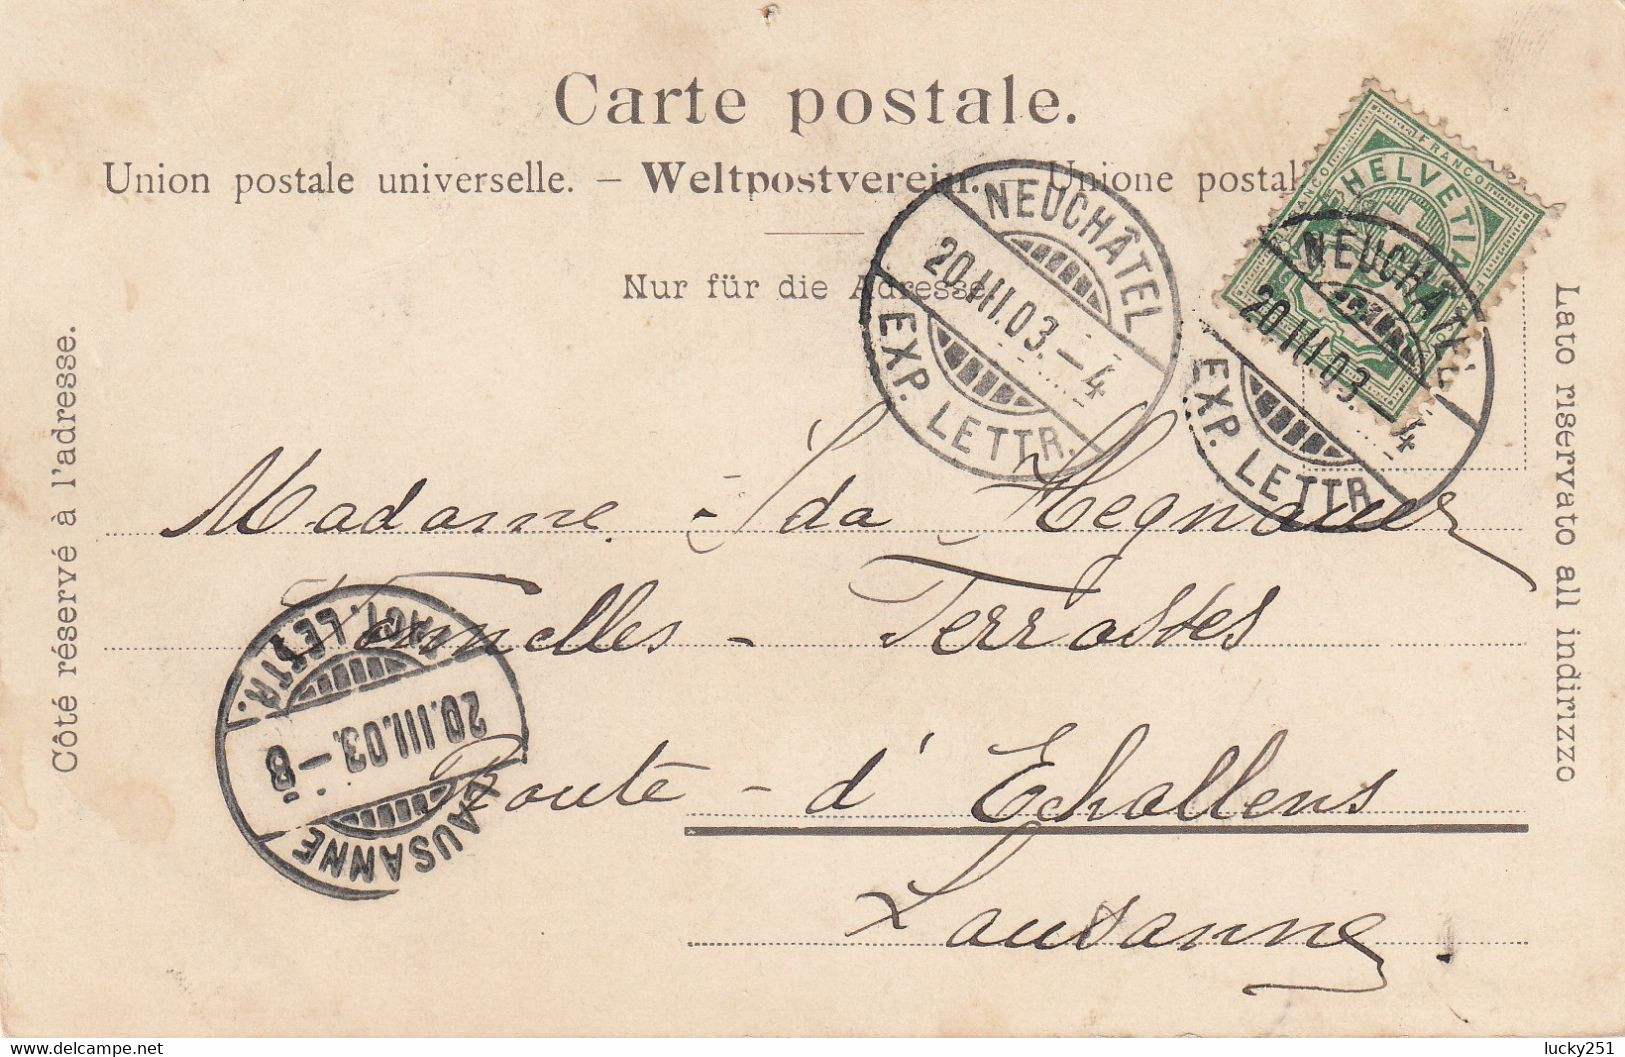 Carte postale.
Union postale universelle. – Weltpostverein. – Unione postal
Nur für die Adresse
Côté réservé à l'adresse.
Lato riservato all indirizzo
FRANCO
HELVETIA
FRANCO
NEUCHÂTEL
20.III.03.–4
EXP. LETTR.
NEUCHÂTEL
20.III.03.–4
EXP. LETTR.
Madame - Ida Hegnauer
- Terrasses
Route - d'Echallens
Lausanne
LETTR.
20.III.03.–8
LAUSANNE
lucky251